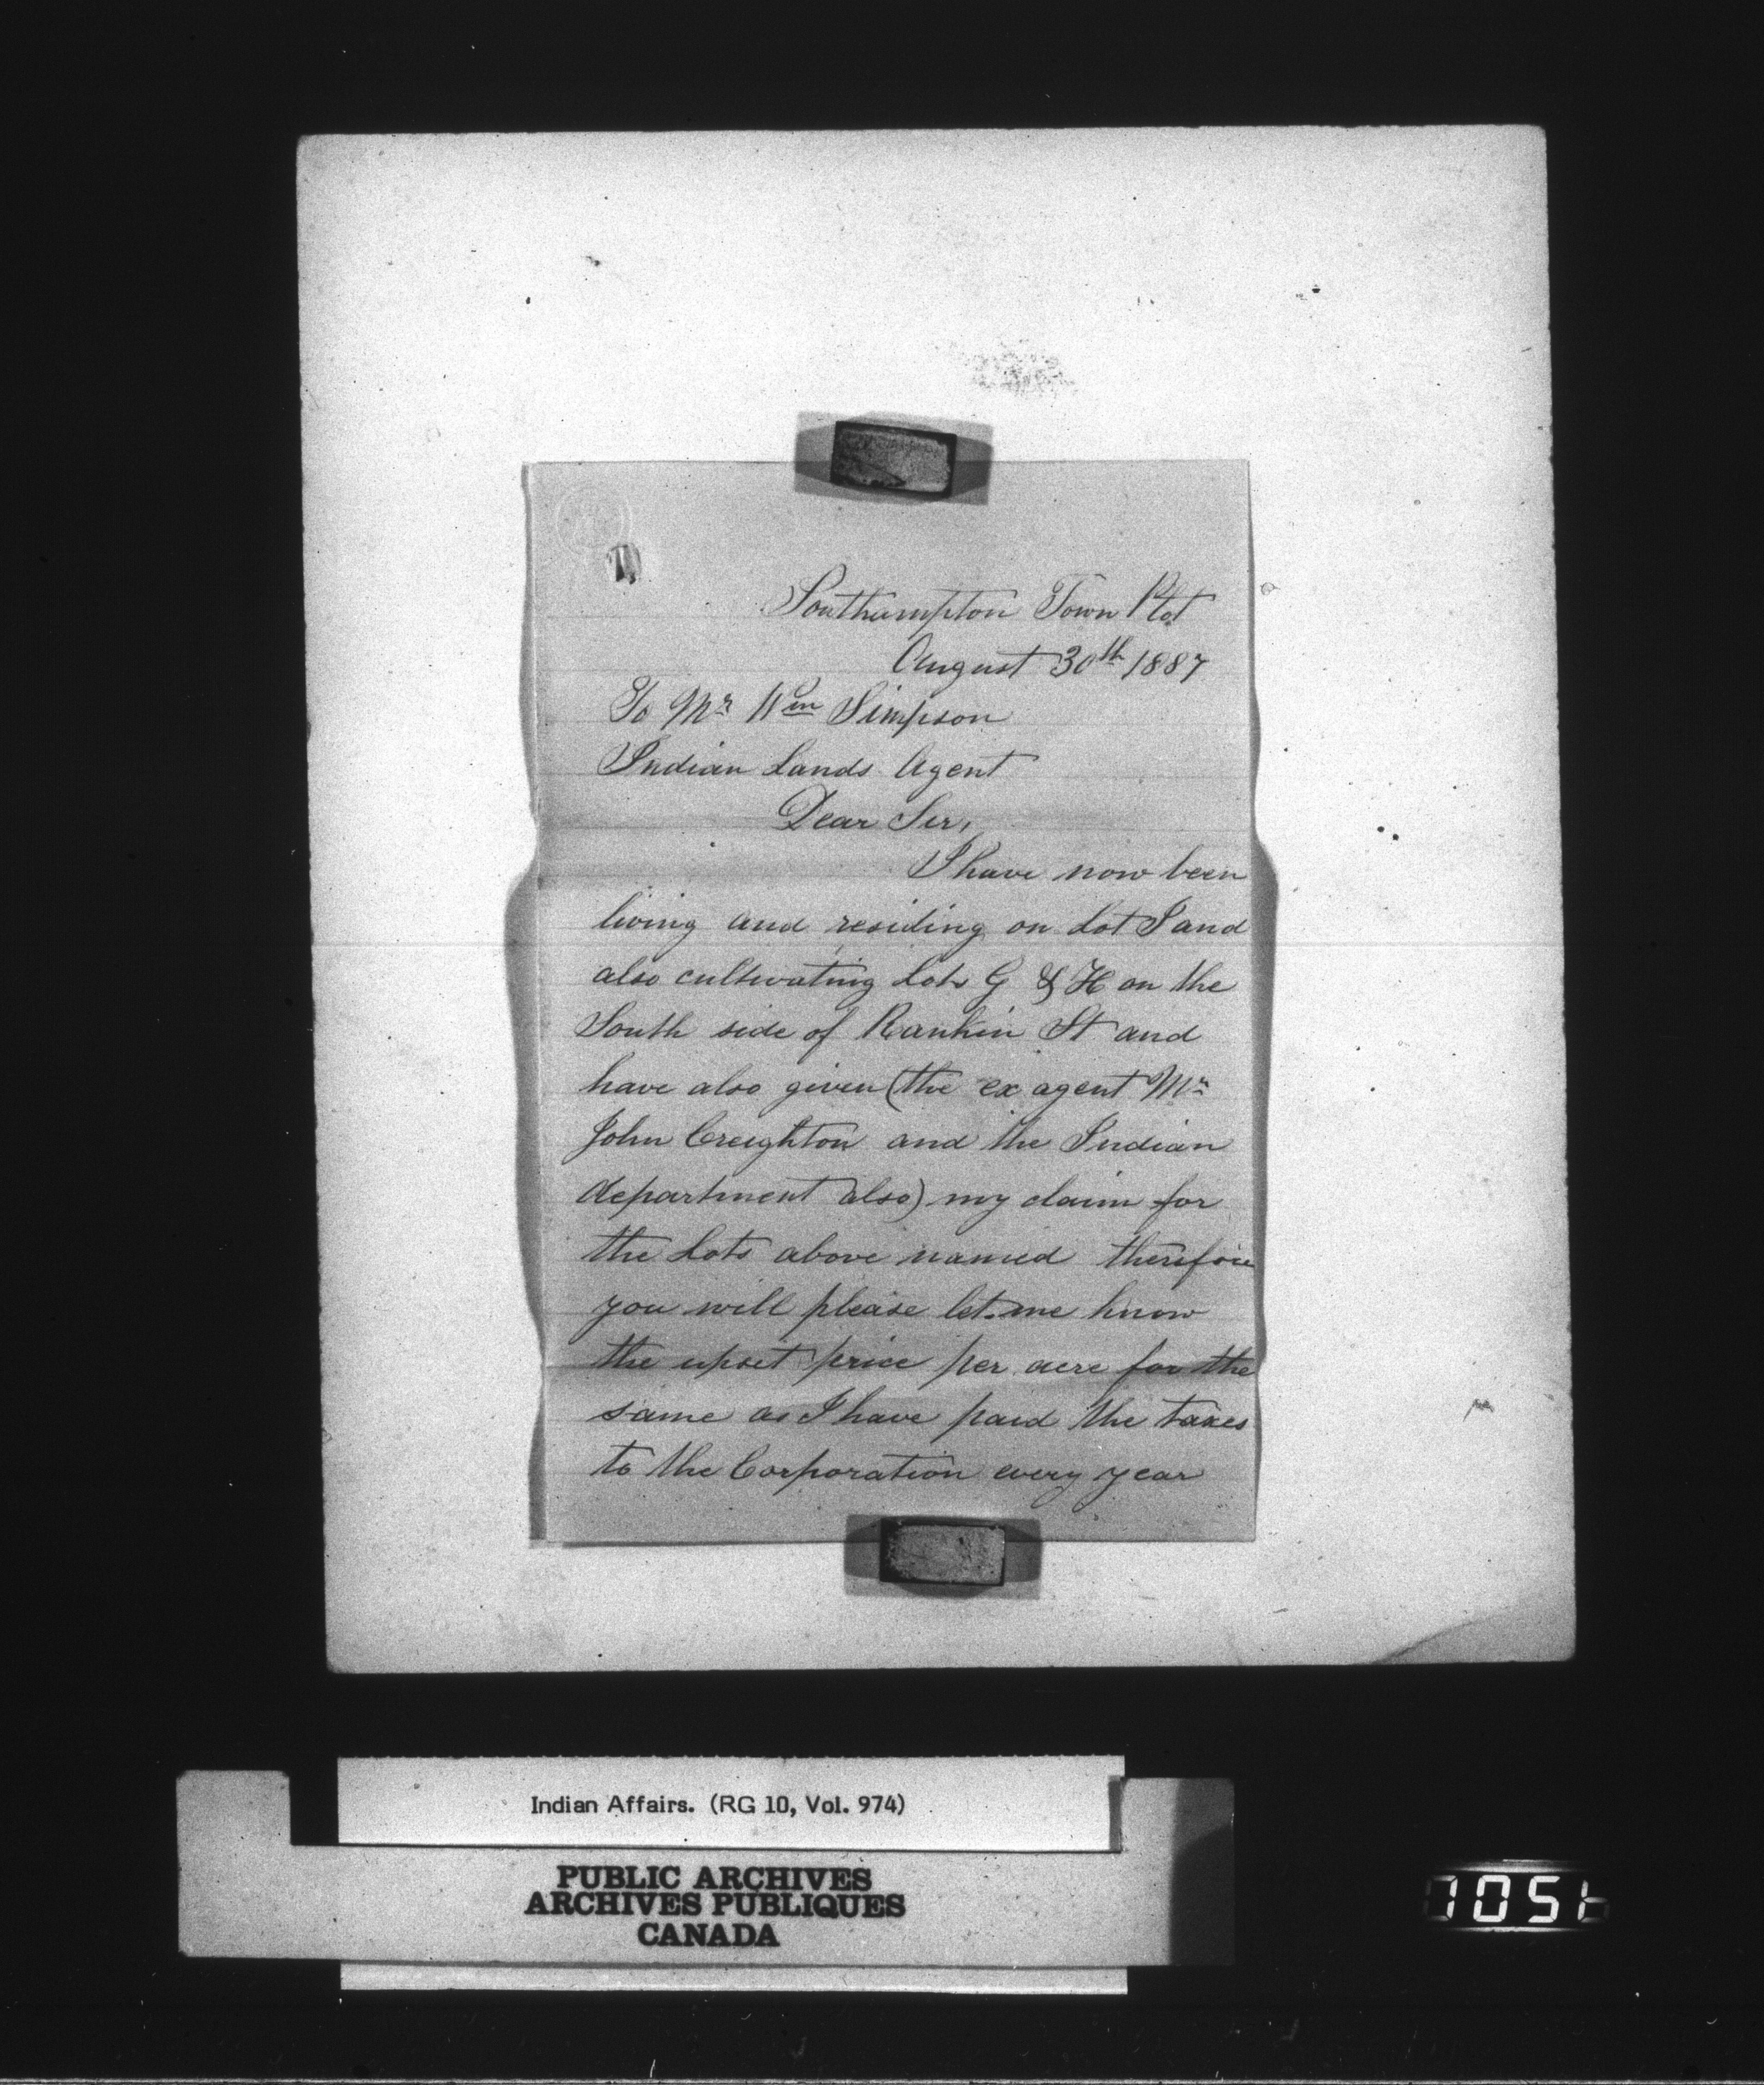 Southampton Town Plot
August 30th 1887
To Mr Wm Simpson
Indian Lands Agent
Dear Sir,
I have now been
living and residing on Lot I and
also cultivating Lots G & H on the
South side of Rankin St and
have also given (the ex agent Mr
John Creighton and the Indian
department also) my claim for
the Lots above named therefore
you will please let me know
the upset price per acre for the
same as I have paid the taxes
to the Corporation every year
Indian Affairs. (RG 10, Vol. 974)
PUBLIC ARCHIVES
ARCHIVES PUBLIQUES
CANADA